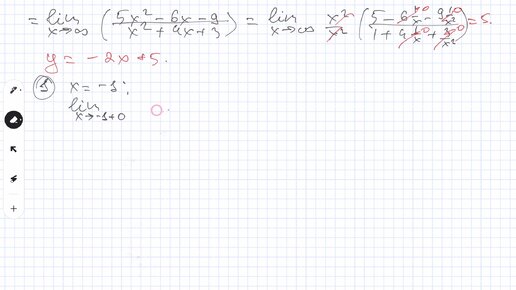 = lim x→∞ (5x² - 6x - 9 / x² + 4x + 3) = lim x→∞ x²/x² (5 - 6/x - 9/x² / 1 + 4/x + 3/x²) = 5.
y = -2x + 5.
③ x = -3;
lim x→-3+0